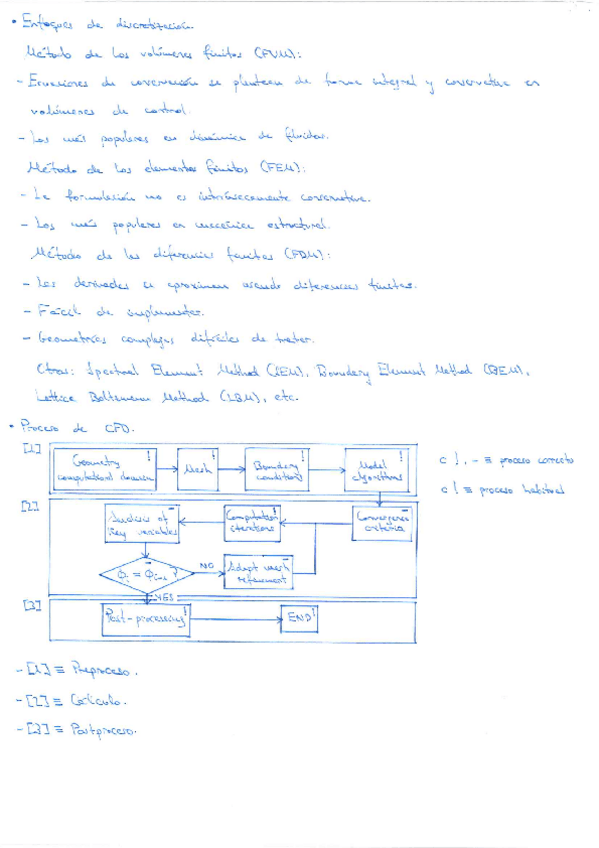 • Enfoques de discretización.
Método de los volúmenes finitos (FVM):
- Ecuaciones de conservación se plantean de forma integral y conservativa en
volúmenes de control.
- Los más populares en dinámica de fluidos.
Método de los elementos finitos (FEM):
- La formulación no es intrínsecamente conservativa.
- Los más populares en mecánica estructural.
Método de las diferencias finitas (FDM):
- Las derivadas se aproximan usando diferencias finitas.
- Fácil de implementar.
- Geometrías complejas difíciles de tratar.
Otros: Spectral Element Method (SEM), Boundary Element Method (BEM),
Lattice Boltzmann Method (LBM), etc.
• Proceso de CFD.
[1]
Geometry !
computational domain
Mesh !
Boundary !
conditions
Model !
algorithms
c !, - ≡ proceso correcto
c ! ≡ proceso habitual
[2]
Analysis of -
key variables
Computation -
iterations
Convergence -
criteria
ϕi = ϕi-1 ?
NO
Adapt mesh -
refinement
YES
[3]
Post-processing !
END !
- [1] ≡ Preproceso.
- [2] ≡ Cálculo.
- [3] ≡ Postproceso.